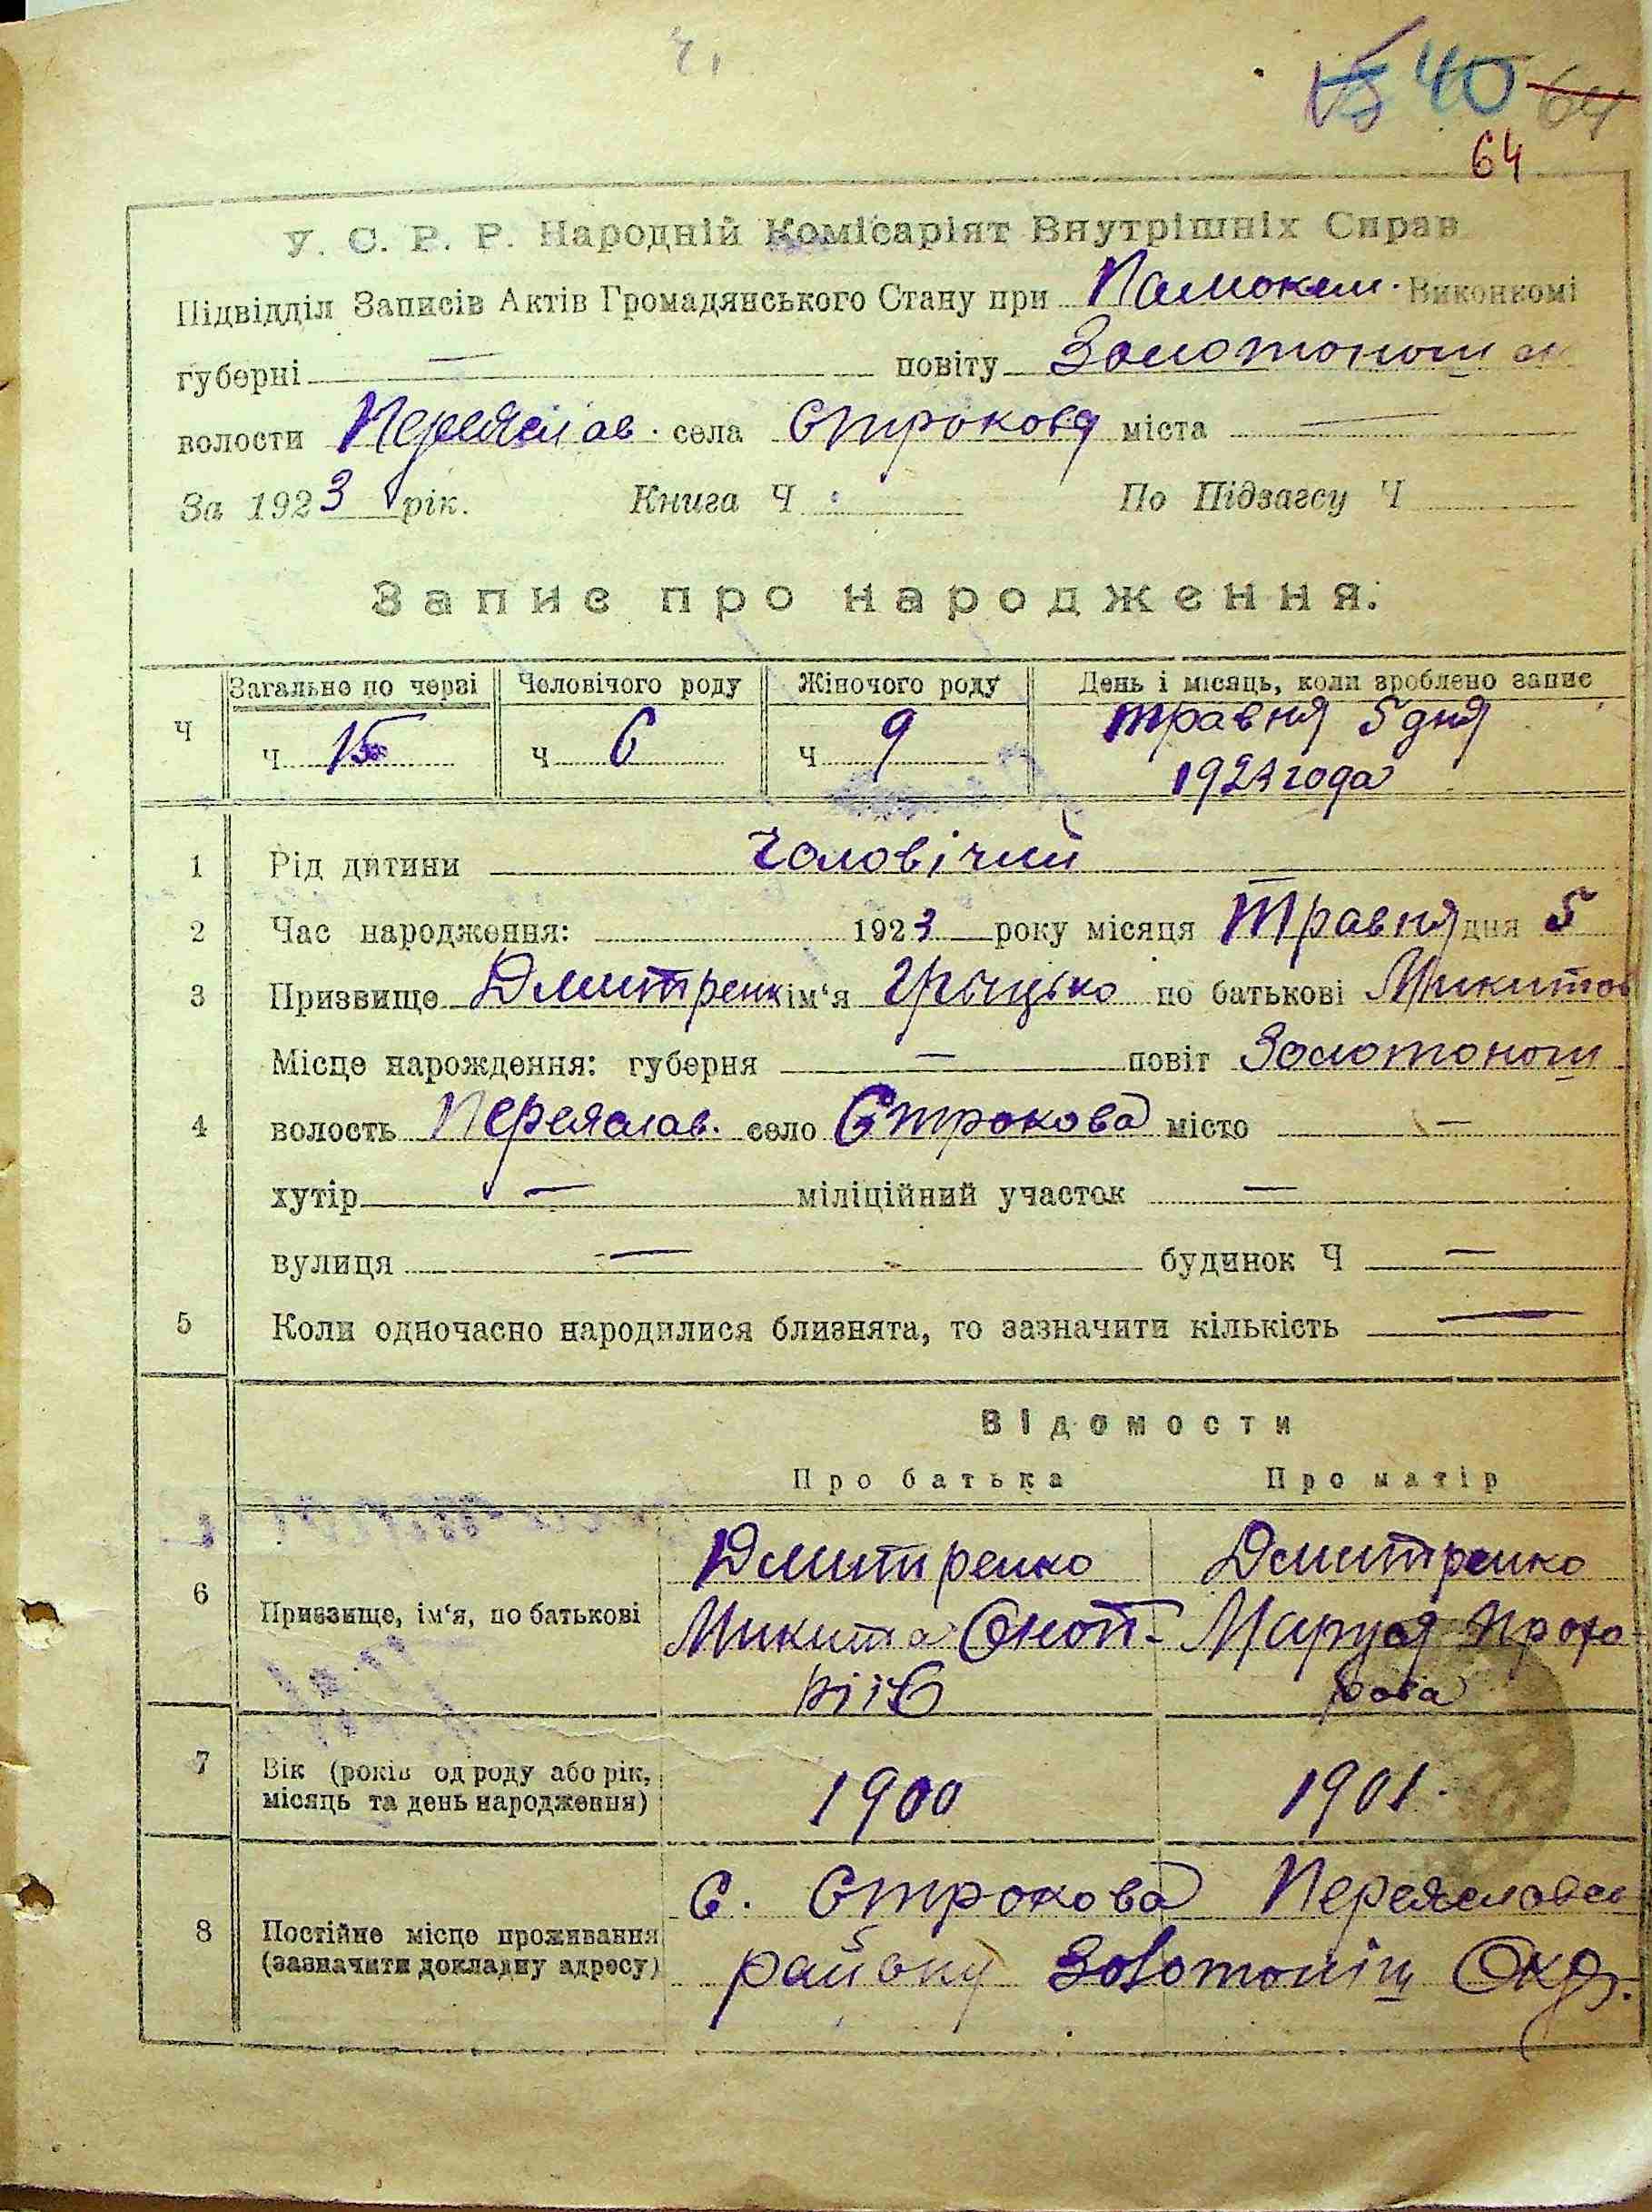 40 64
64
У. С. Р. Р. Народній Комісаріят Внутрішніх Справ
Підвідділ Записів Актів Громадянського Стану при Виконкомі
губерні — повіту Золотонош
волости Переяслав. села Строкова міста —
За 1923 рік. Книга Ч По Підзагсу Ч
Запис про народження.
Загально по черзі Чоловічого роду Жіночого роду День і місяць, коли зроблено запис
Ч Ч 15 Ч 6 Ч 9 травня 5 дня
1923 года
1 Рід дитини Чоловічий
2 Час народження: 1923 року місяця Травня дня 5
3 Призвище Дмитренк ім'я Грицько по батькові Микитов
Місце нарождення: губерня — повіт Золотонош
4 волость Переяслав. село Строкова місто —
хутір — міліційний участок —
вулиця — будинок Ч —
5 Коли одночасно народилися близнята, то зазначити кількість —
Відомости
Про батька Про матір
Дмитренко Дмитренко
6 Призвище, ім'я, по батькові Микита Маруся Прохо-
рова
7 Вік (років од роду або рік, місяць та день народження) 1900 1901.
8 Постійне місце проживання (зазначити докладну адресу) С. Строкова Переяславск
району Золотоніш Окр.